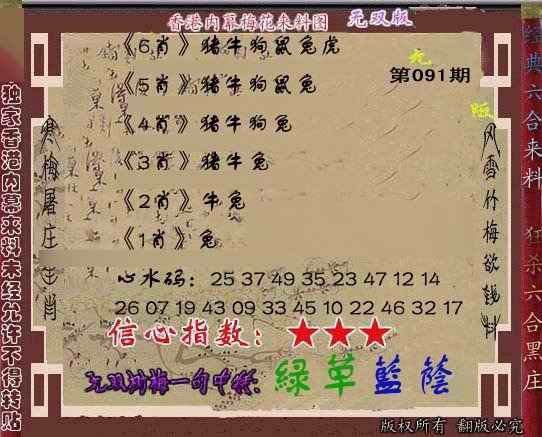 香港内幕梅花来料图 无双版
《6肖》猪牛狗鼠兔虎
无
第091期
《5肖》猪牛狗鼠兔
版
《4肖》猪牛狗兔
《3肖》猪牛兔
《2肖》牛兔
《1肖》兔
心水码：25 37 49 35 23 47 12 14
26 07 19 43 09 33 45 10 22 46 32 17
信心指数：★★★
无双断梅一句中特：綠草藍蔭
独家香港内幕来料未经允许不得转贴
寒梅屠庄生肖
风雪竹梅欲钱料
经典六合来料
狂杀六合黑庄
版权所有 翻版必究